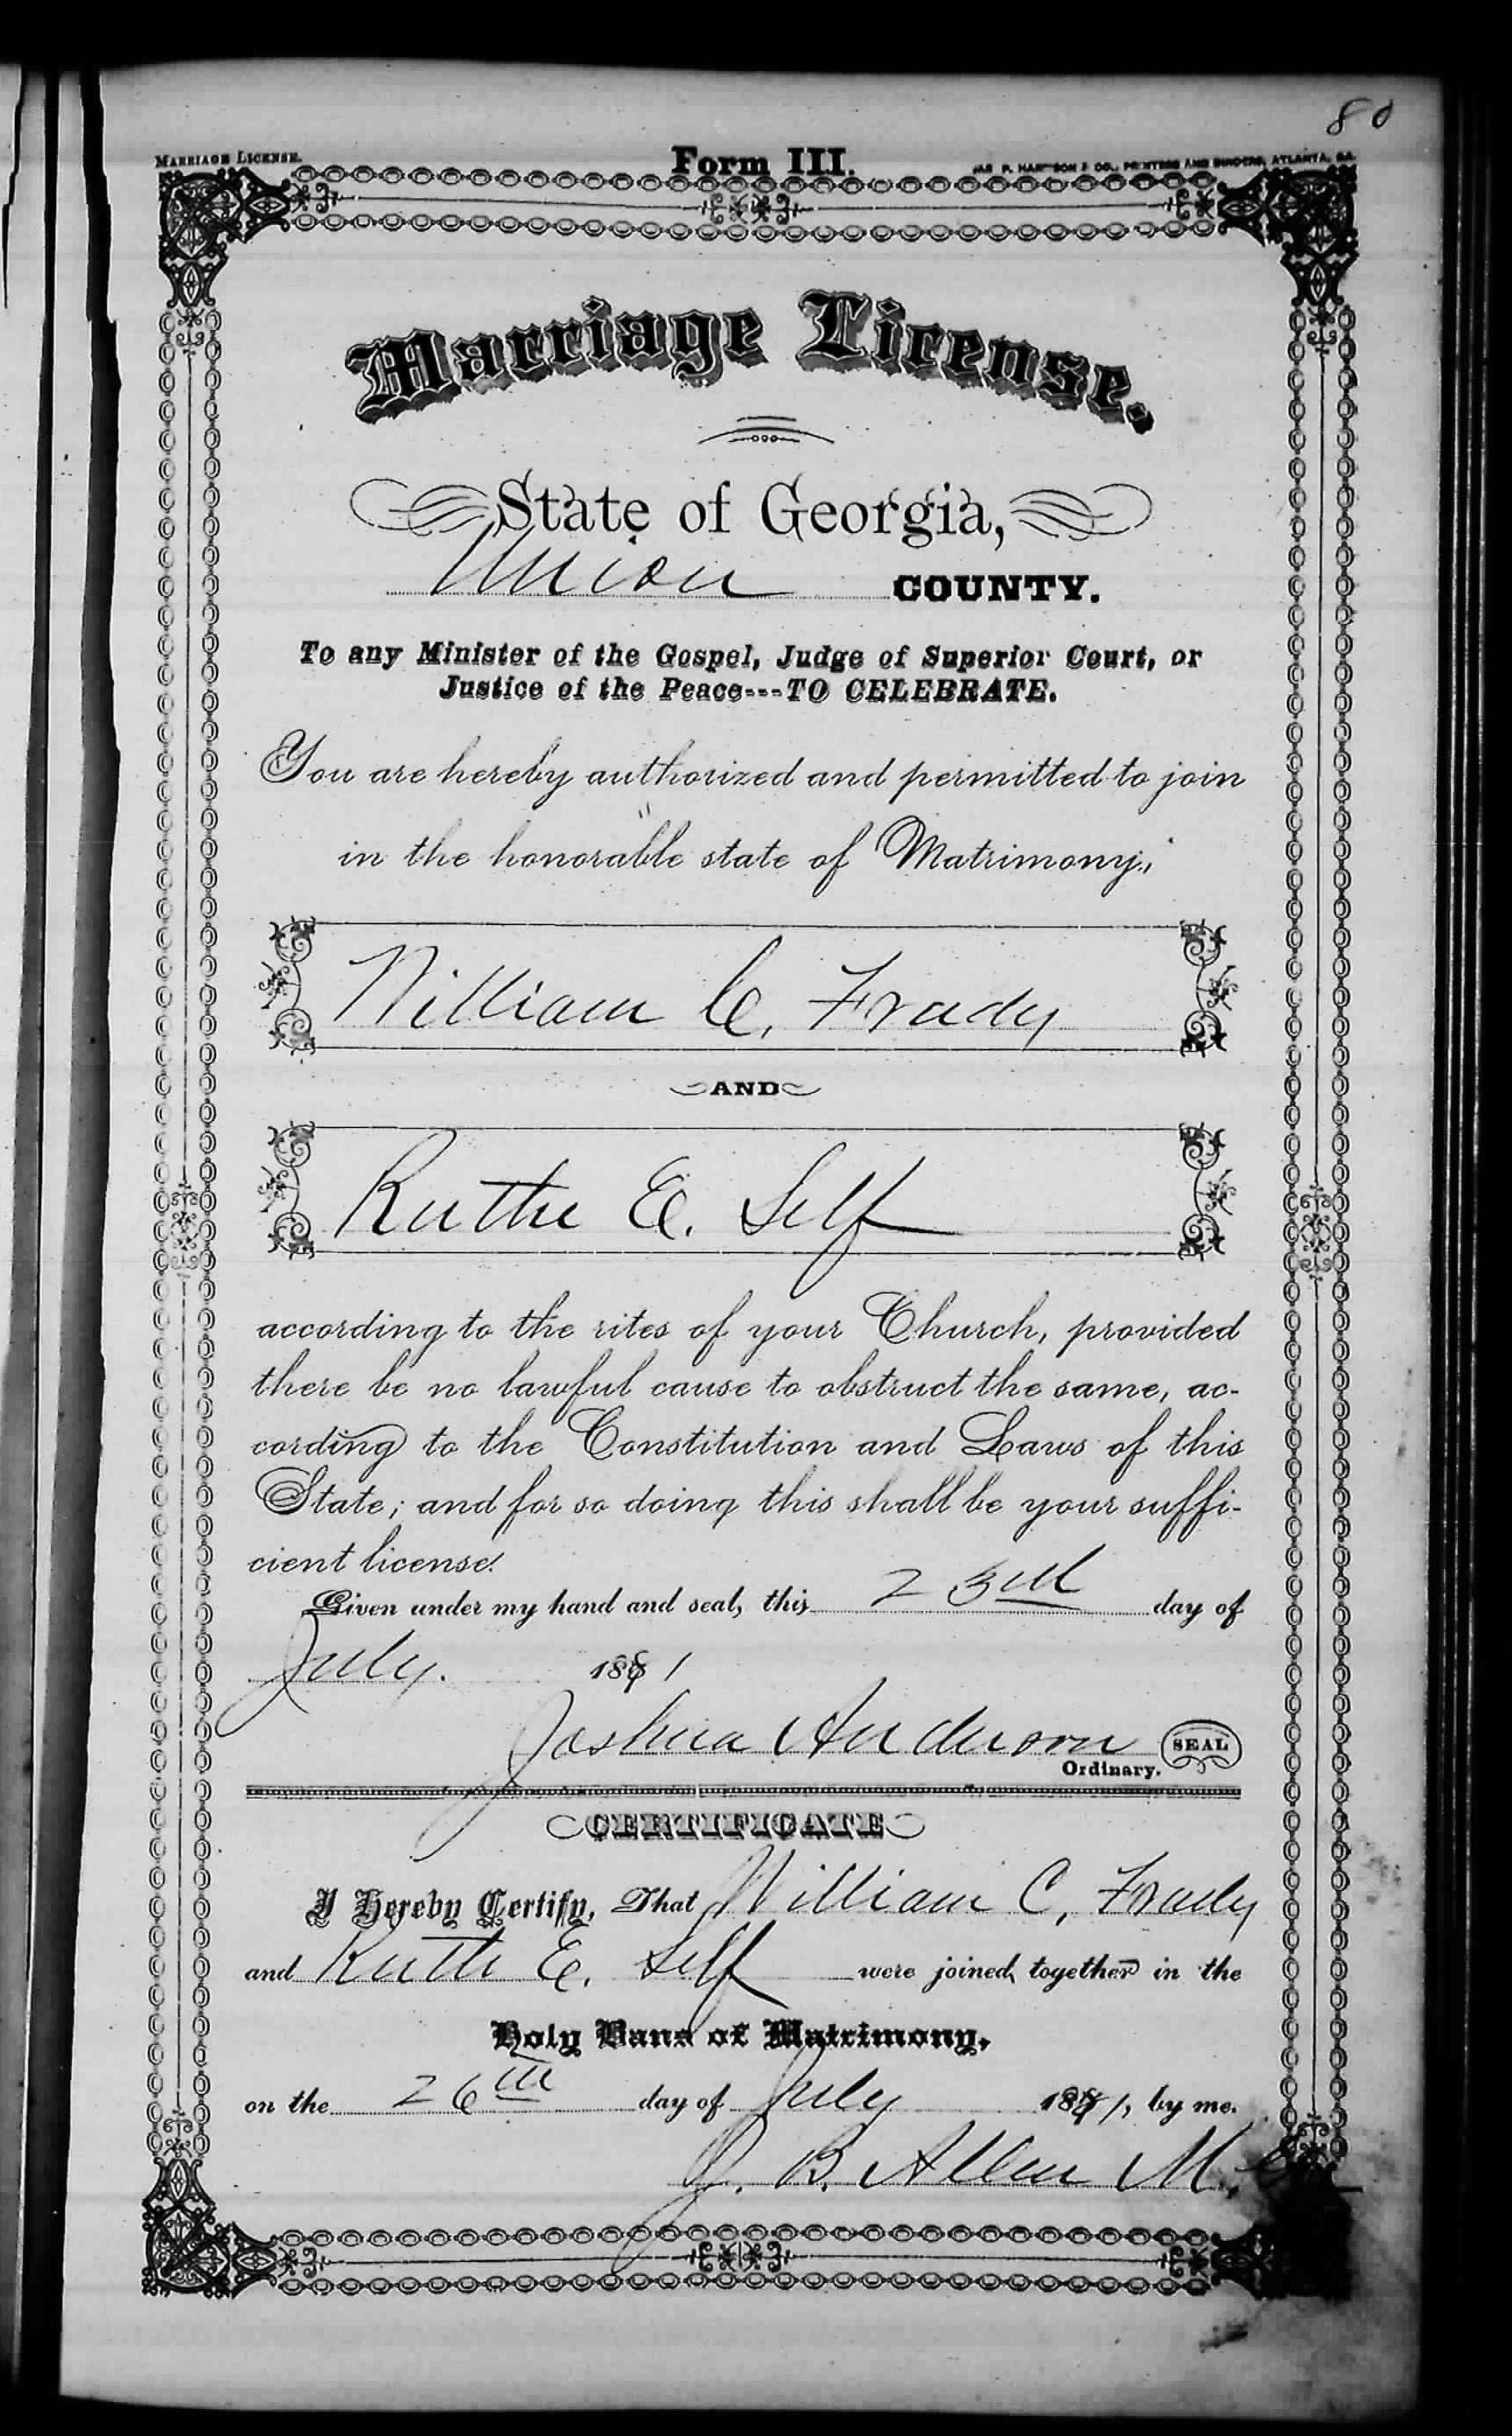 80
MARRIAGE LICENSE.
Form III.
JAS P. HARRISON & CO., PRINTERS AND BINDERS, ATLANTA, GA.
Marriage License.
State of Georgia,
Union COUNTY.
To any Minister of the Gospel, Judge of Superior Court, or
Justice of the Peace---TO CELEBRATE.
You are hereby authorized and permitted to join
in the honorable state of Matrimony,
William C. Frady
AND
Ruthe E. Self
according to the rites of your Church, provided
there be no lawful cause to obstruct the same, ac-
cording to the Constitution and Laws of this
State; and for so doing this shall be your suffi-
cient license.
Given under my hand and seal, this 23rd day of
July. 1881
Joshua Anderson SEAL
Ordinary.
CERTIFICATE
I Hereby Certify, That William C. Frady
and Ruthe E. Self were joined together in the
Holy Bans of Matrimony,
on the 26th day of July 1881, by me.
J. B. Allen M.